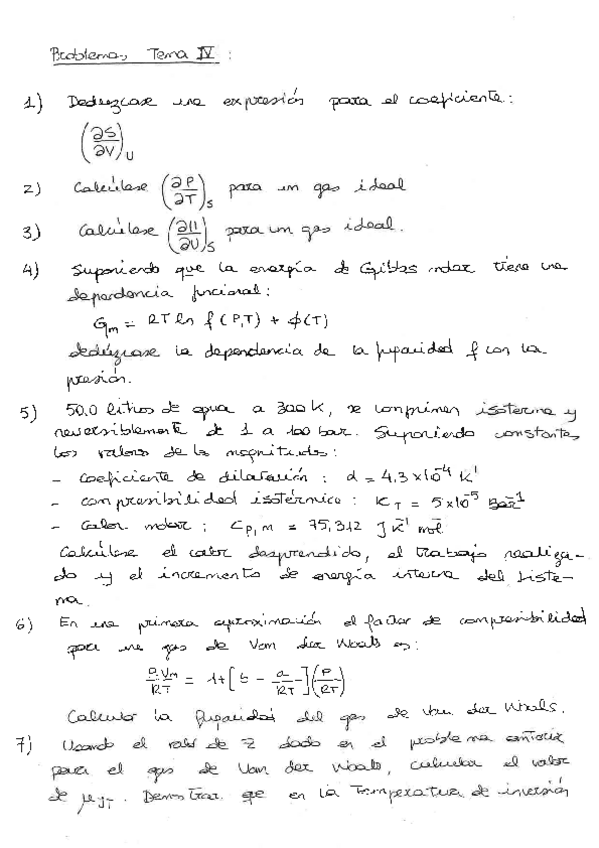 Problemas Tema IV :
1) Dedúzcase una expresión para el coeficiente:
(∂S/∂V)U
2) Calcúlese (∂P/∂T)S para un gas ideal
3) Calcúlese (∂U/∂V)S para un gas ideal.
4) Suponiendo que la energía de Gibbs molar tiene una
dependencia funcional:
Gm = RT ln f(P,T) + φ(T)
dedúzcase la dependencia de la fugacidad f con la
presión.
5) 50.0 litros de agua a 300K, se comprimen isoterma y
reversiblemente de 1 a 100 bar. Suponiendo constantes
los valores de las magnitudes:
- coeficiente de dilatación : α = 4.3 x 10⁻⁴ K⁻¹
- compresibilidad isotérmica : KT = 5 x 10⁻⁵ Bar⁻¹
- Calor molar : CP,m = 75,312 J K⁻¹ mol⁻
Calcúlese el calor desprendido, el trabajo realiza-
do y el incremento de energía interna del siste-
ma.
6) En una primera aproximación el factor de compresibilidad
para un gas de Van der Waals es:
PVm/RT = 1+[b - a/RT](P/RT)
Calcular la fugacidad del gas de Van der Waals.
7) Usando el valor de Z dado en el problema anterior
para el gas de Van der Waals, calcular el valor
de μJT. Demostrar que en la Temperatura de inversión